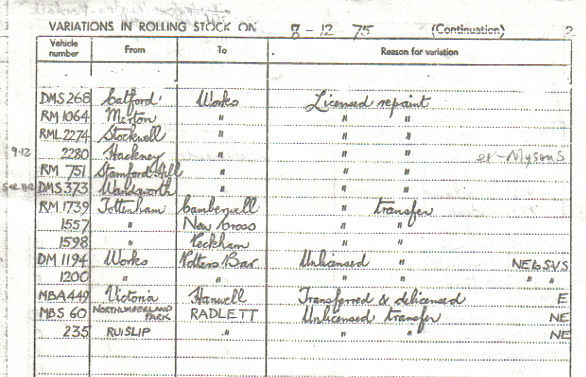 VARIATIONS IN ROLLING STOCK ON 8 - 12 75 (Continuation) 2
Vehicle number From To Reason for variation
DMS 268 Catford Works Licensed repaint
RM 1064 Merton " " "
RML 2274 Stockwell " " "
9.12 2280 Hackney " " " ex-Mysons
RM 751 Stamford Hill " " "
DMS 373 Wandsworth " " "
RM 1739 Tottenham Camberwell " transfer
1557 " New Cross " "
1598 " Peckham " "
DM 1194 Works Potters Bar Unlicensed " NE to SVS
1200 " " " " " "
MBA 449 Victoria Hanwell Transferred & delicensed E
MBS 60 NORTHUMBERLAND PARK RADLETT Unlicensed transfer NE
235 RUISLIP " " " NE